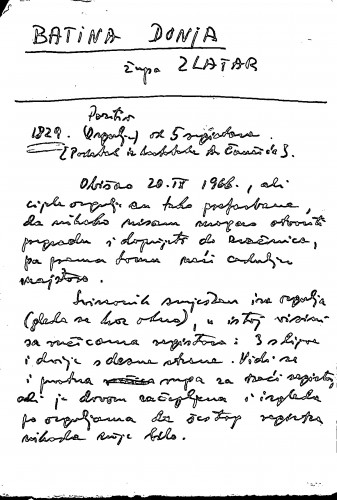 BATINA DONJA
župa ZLATAR
Pozitiv
1829. (Orgulje) od 5 registara.
[Podatak iz kartoteke dr Šaminića].
Obišao 20. IX 1966., ali
cijele orgulje su tako
da nikako nisam mogao otvoriti
pregradu i doprijeti do zračnica,
pa prema tomu naći
majstora.
Svirаonik smješten iza orgulja
(gleda se kroz okno), u istoj visini
sa ručicama registara i 3 s lijeve
i dvije s desne strane. Vidi se
i rupa za treći registar,
ali je drvom začepljena i izgleda
po orguljama da šestog registra
nikada nije bilo.